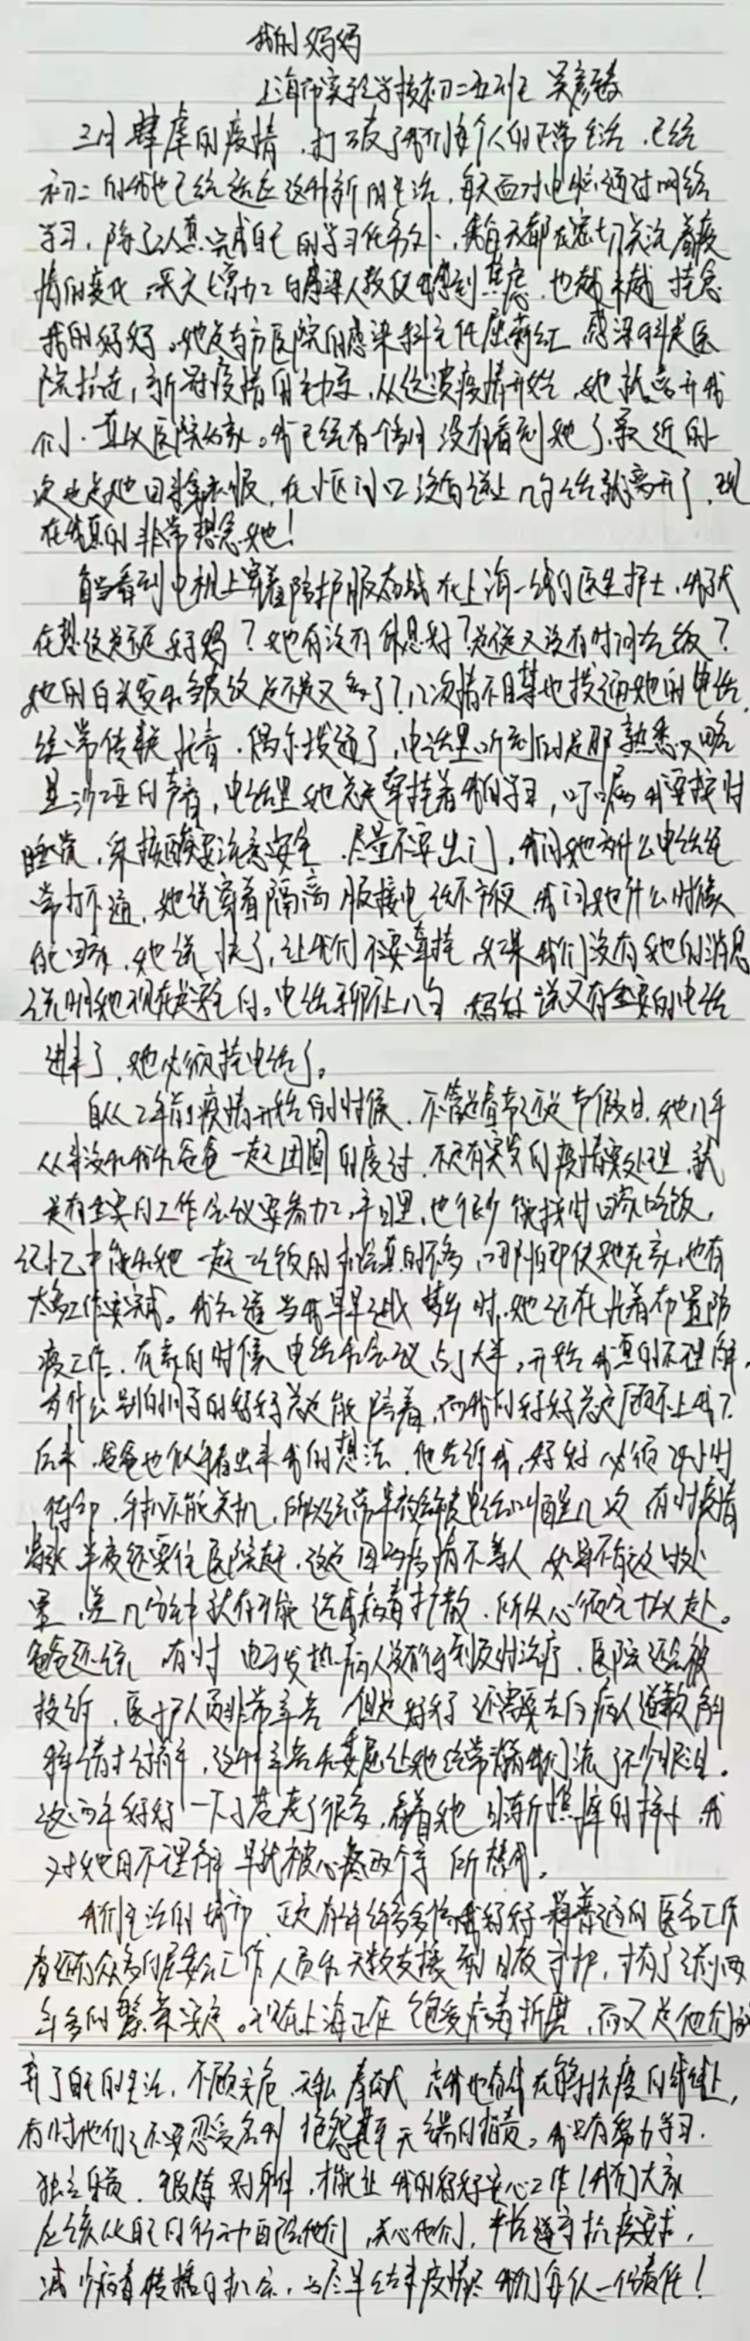 我的妈妈
上海市实验学校初二五班 吴彦
三月肆虐的疫情,打破了我们每个人的正常生活,已经
初二的我也已经适应这种新的生活,每天面对电脑通过网络
学习,除了认真完成自己的学习任务外,我每天都在密切关注着疫
情的变化,天天增加的感染人数使我感到焦虑,也越来越挂念
我的妈妈。她是南方医院的感染科主任屈莉红,感染科是医
院抗击新冠疫情的主力军,从这波疫情开始,她就离开我
们,直以医院为家。我已经有个月没有看到她了,最近的一
次也是她回来拿衣服,在小区门口没有说上几句话就离开了,现
在我真的非常想念她!
每当看到电视上穿着防护服奋战在上海一线的医生护士,我就
在想这是不是妈妈?她有没有休息好?是说又没有时间吃饭?
她的白头发和皱纹是不是又多了?几次情不自禁地拨通她的电话,
经常传来忙音,偶尔拨通了,电话里听到的是那熟悉又略
显沙哑的声音,电话里她总是牵挂着我的学习,叮嘱我要按时
睡觉,采核酸要注意安全,尽量不要出门,我问她为什么电话经
常打不通,她说穿着隔离服接电话不方便,我问她什么时候
能回来,她说快了,让我们不要牵挂,如果我们没有她的消息
说明她现在是安全的。电话聊不上几句,妈妈说又有重要的电话
进来了,她必须挂电话了。
自从2年前疫情开始的时候,不管是春节还是节假日,她几乎
从来没和我和爸爸一起团圆的度过,不是有突发的疫情要处理,就
是有重要的工作会议要参加,平日里,也很少能按时回家吃饭,
记忆中能和她一起吃饭的机会真的不多,哪怕即使她在家,也有
太多工作要完成。我知道当我早早进入梦乡时,她还在忙着布置防
疫工作,在家的时候,电话和会议占了大半,开始我真的不理解,
为什么别的同学的妈妈总是能陪着,而我的妈妈总是顾不上我?
后来,爸爸也似乎看出来我的想法,他告诉我,妈妈必须24小时
待命,手机不能关机,所以经常半夜会被电话叫醒几次,有时疫情
紧张半夜还要往医院赶,这是因为疫情不等人,如果不及时处
置,差几分钟就有可能造成病毒扩散,所以必须全力以赴。
爸爸还说,有时由于发热病人没有得到及时治疗,医院还会被
投诉,医护人员非常辛苦,但是妈妈还需要去向病人道歉,解
释清楚,这种辛苦和委屈让她经常背着我们流了不少眼泪。
这两年妈妈一下子苍老了很多,看着她日渐憔悴的样子,我
对她的不理解早就被心疼两个字所替代。
我们生活的城市,正是有许许多多像我妈妈一样普通的医务工作
者还有众多的居委会工作人员和无数支援者的日夜守护,才有了之前两
年多的繁荣安定。现在上海正在饱受病毒折磨,而又是他们放
弃了自己的生活,不顾安危,无私奉献,
有时他们还要忍受各种抱怨甚至无端的指责。我只有努力学习,
独立自强,锻炼身体,才能让我的妈妈安心工作!我们大家
应该从自己的行动自己做起,关心他们,严格遵守抗疫要求,
减少病毒传播的机会,为尽早结束疫情尽我们每人一份责任!